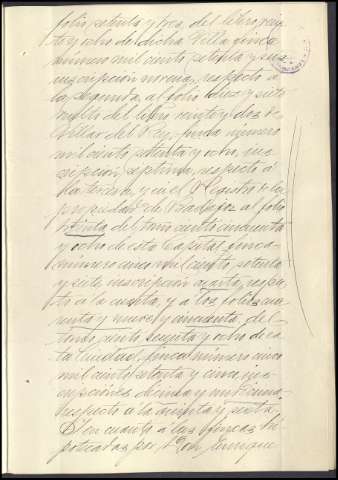 folio setenta y tres, del libro vein
te y ocho de dicha Villa, finca
número mil ciento setenta y seis
inscripción novena, respecto á
la segunda, al folio diez y siete
vuelto del libro veinte y dos de
Villar del Rey, finca número
mil ciento setenta y ocho, ins
cripción séptima, respecto á
la tercera, y en el Registro de la
propiedad de Badajoz al folio
treinta del tomo ciento cincuenta
y ocho de esta Capital, finca
número cinco mil ciento setenta
y siete inscripción cuarta, respec
to á la cuarta, y á los folios cua
renta y nueve y cincuenta del
tomo ciento sesenta y ocho de es
ta Ciudad, finca número cinco
mil ciento setenta y cinco, ins
cripciones décima y undécima,
respecto á la quinta y sexta.
El en cuanto á las fincas hi
potecadas por Don Enrique